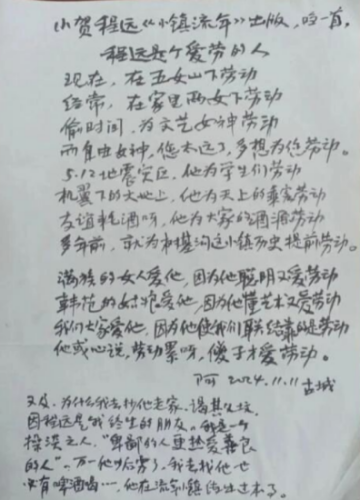 小贺程远《小镇流年》出版,呜一首,
程远是个爱劳的人
现在,在五女山下劳动
经常,在家里两女下劳动
偷时间,为文艺女神劳动
而自由女神,您太远了,多想为您劳动。
5.12地震灾区,他为学生们劳动
机翼下的大地上,他为天上的乘客劳动
友谊轧酒呀,他为大家的酒酒劳动
多年前,就为市楼沟这小镇历史提前劳动。
满族的女人爱他,因为他聪明又爱劳动
韩范的姑娘爱他,因为他懂艺术又爱劳动
我们大家爱他,因为他使我们联结靠的是劳动
他或心说,劳动累呀,傻子才爱劳动。
阿 2024.11.11 古城
又及,为什么我去抄他老家,谒其父坟,
因程远是我终生的朋友。我是一个
操漠之人,"卑鄙的人更热爱善良
的人",万一他步后穷了,我去找他也
有啤酒喝…,他在流年小镇